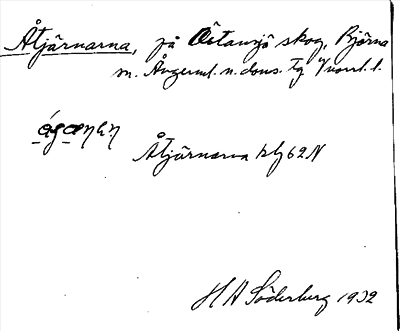 Åtjärnarna, på Östansjö skog, Björna
m. Ångerml. n. doms. tg Vnorrl. l.
ágæṇa·ṇ
Åtjärnarna blg 62 N
H A Söderberg 1932